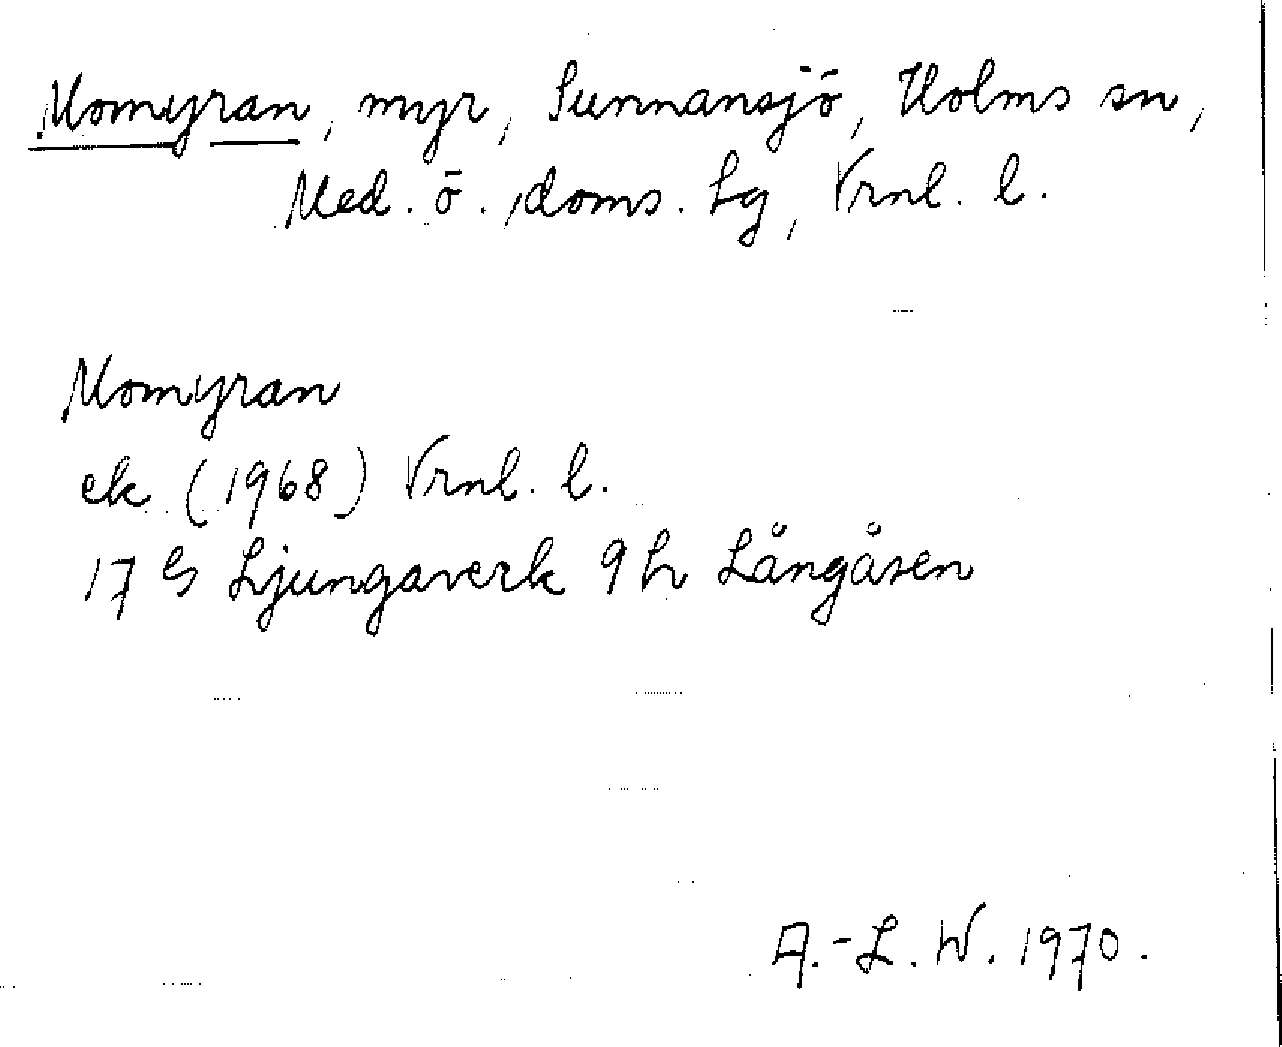 Momyran, myr, Sunnansjö, Holms sn,
Med. ö. doms. lg, Vrnl. l.
Momyran
ek (1968) Vrnl. l.
17 G Ljungaverk 9 h Långåsen
A.-L. W. 1970.